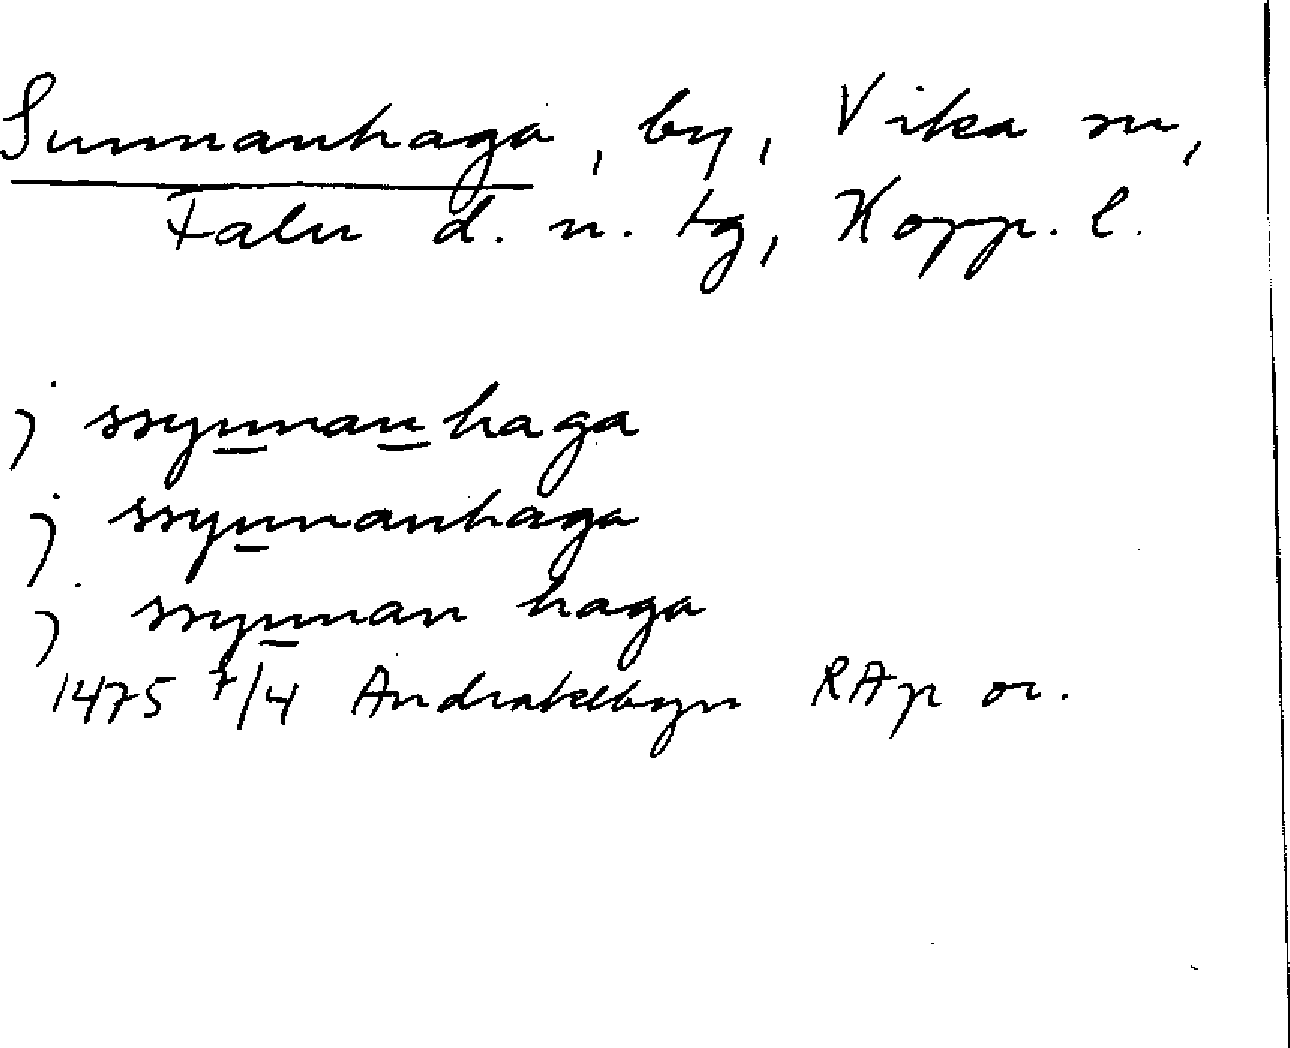 Sunnanhaga, by, Vika sn,
Falu d. n. tg, Kopp. l.
j ssynnanhaga
j ssynnanhaga
j ssynnan haga
1475 7/4 Andrakelbyn RAp or.